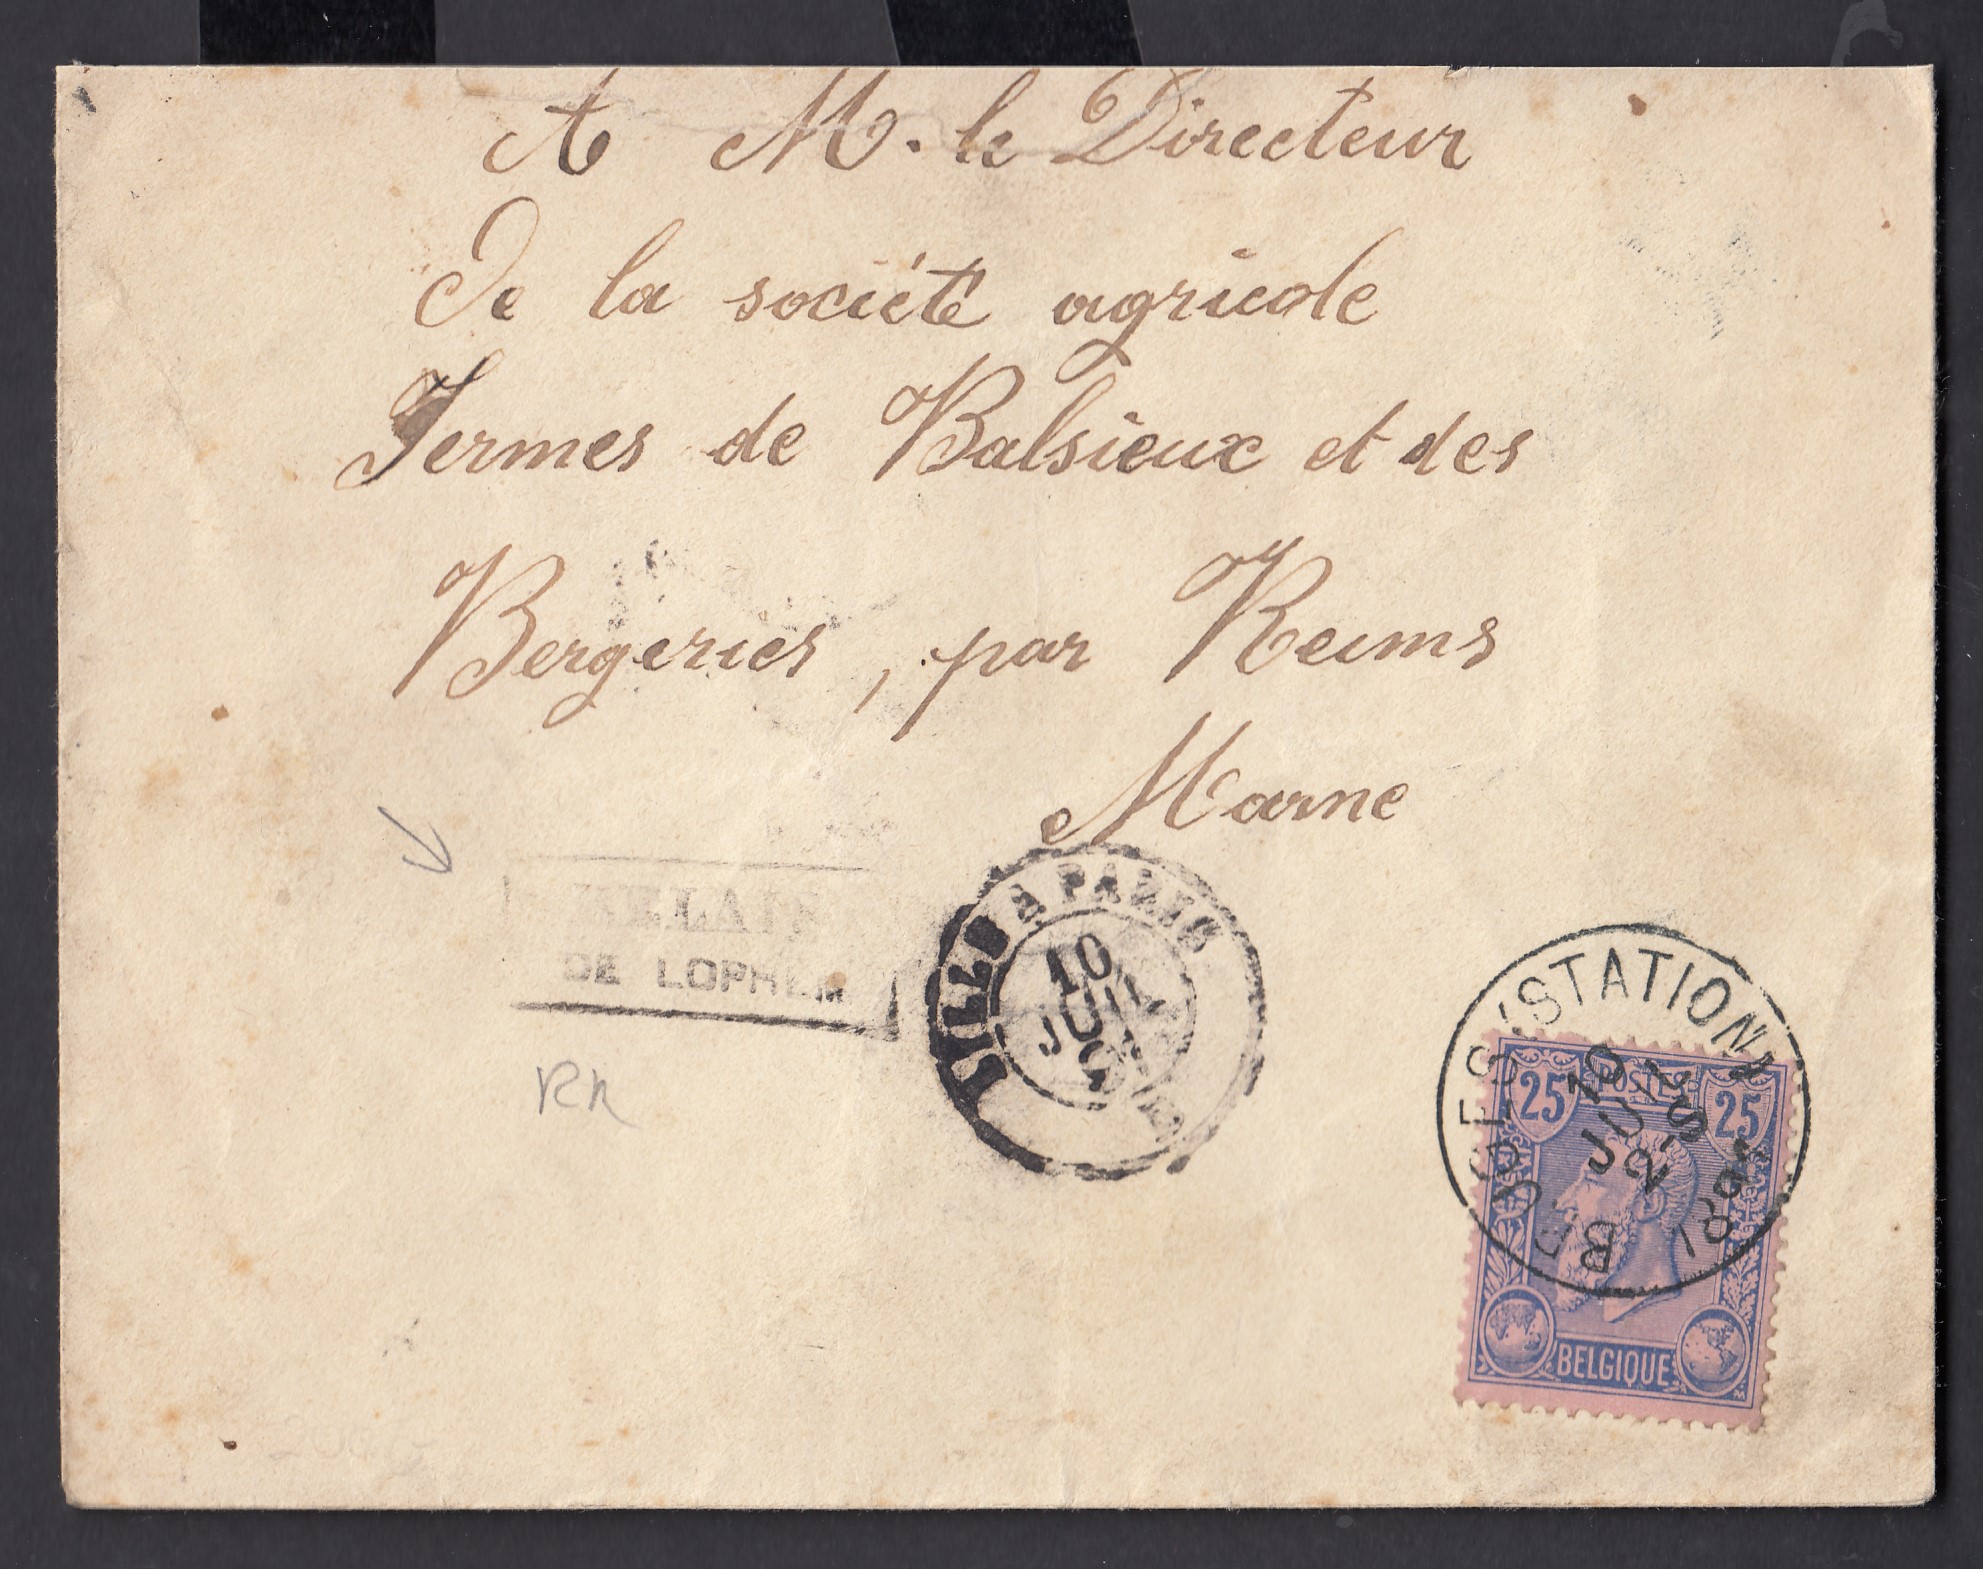 A M. le Directeur
De la société agricole
Fermes de Balsieux et des
Bergeries, par Reims
Marne
RELAIS
DE LOPHEM
LILLE A PARIS
10
JUIL
RR
BRUGES (STATION)
10
JUIL
2-S
1891
25 POSTES 25
BELGIQUE